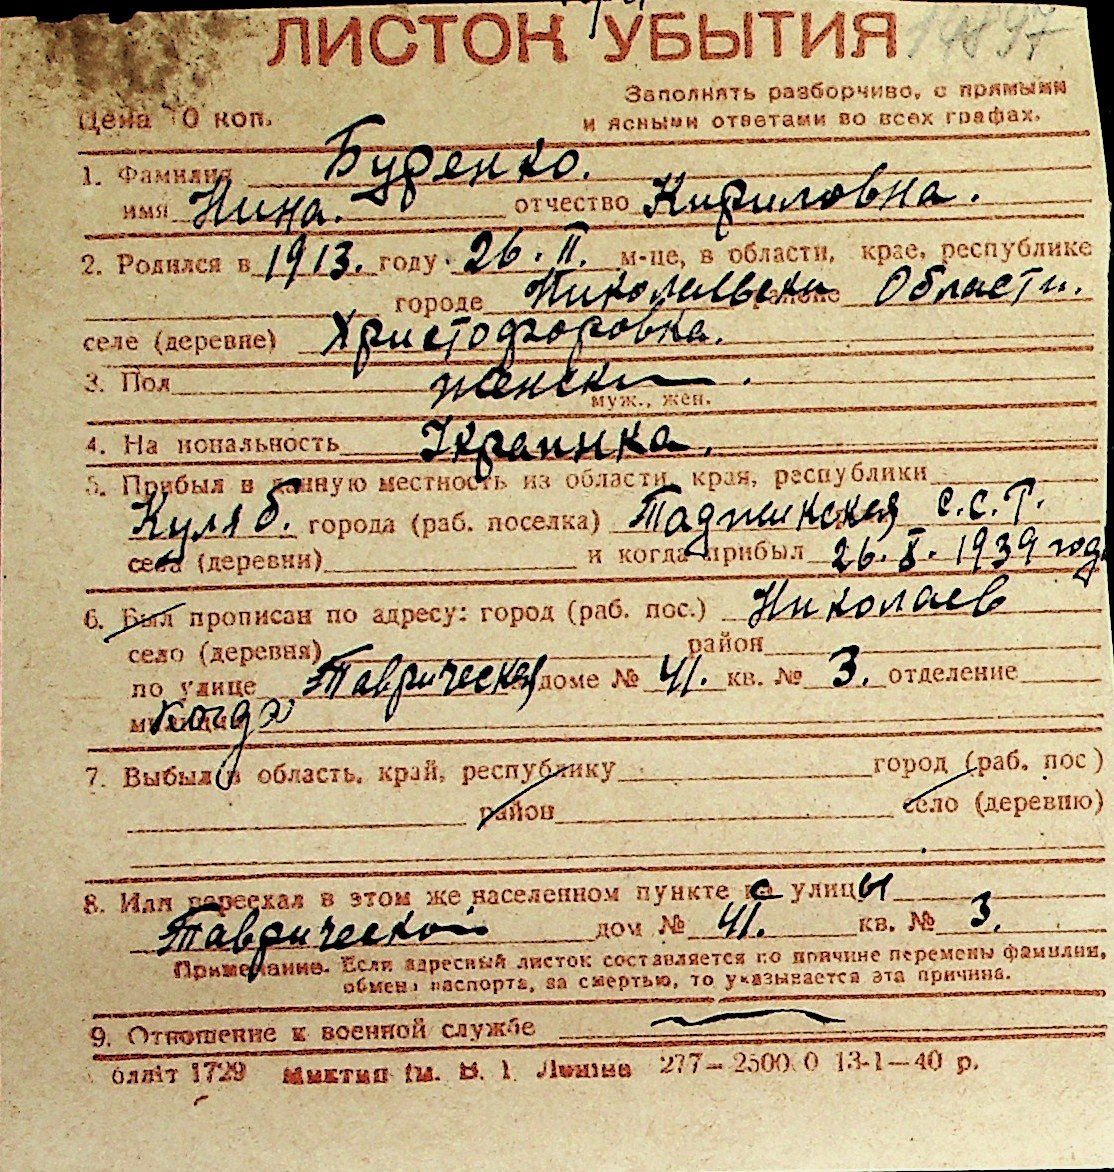 ЛИСТОК УБЫТИЯ
Заполнять разборчиво, с прямыми
Цена 10 коп. и ясными ответами во всех графах.
1. Фамилия Буренко.
имя Нина. отчество Кириловна.
2. Родился в 1913. году 26.II. м-це, в области, крае, республике
городе Николаевска районе Области.
селе (деревне) Христофоровка.
3. Пол женски
муж., жен.
4. Национальность Українка.
5. Прибыл в данную местность из области, края, республики
Куляб. города (раб. поселка) Таджикская С.С.Р.
села (деревни) и когда прибыл 26.X.1939 год
6. Был прописан по адресу: город (раб. пос.) Николаев
село (деревня) район
по улице Таврическая доме № 41. кв. № 3. отделение
милиции когда
7. Выбыл в область, край, республику город (раб. пос)
район село (деревню)
8. Или переехал в этом же населенном пункте с улицы
Таврической дом № 41. кв. № 3.
Примечание. Если адресный листок составляется по причине перемены фамилии,
обмена паспорта, за смертью, то указывается эта причина.
9. Отношение к военной службе
блліт 1729 Миктип ім. В. І. Леніна 277—2500.0 13-1—40 р.